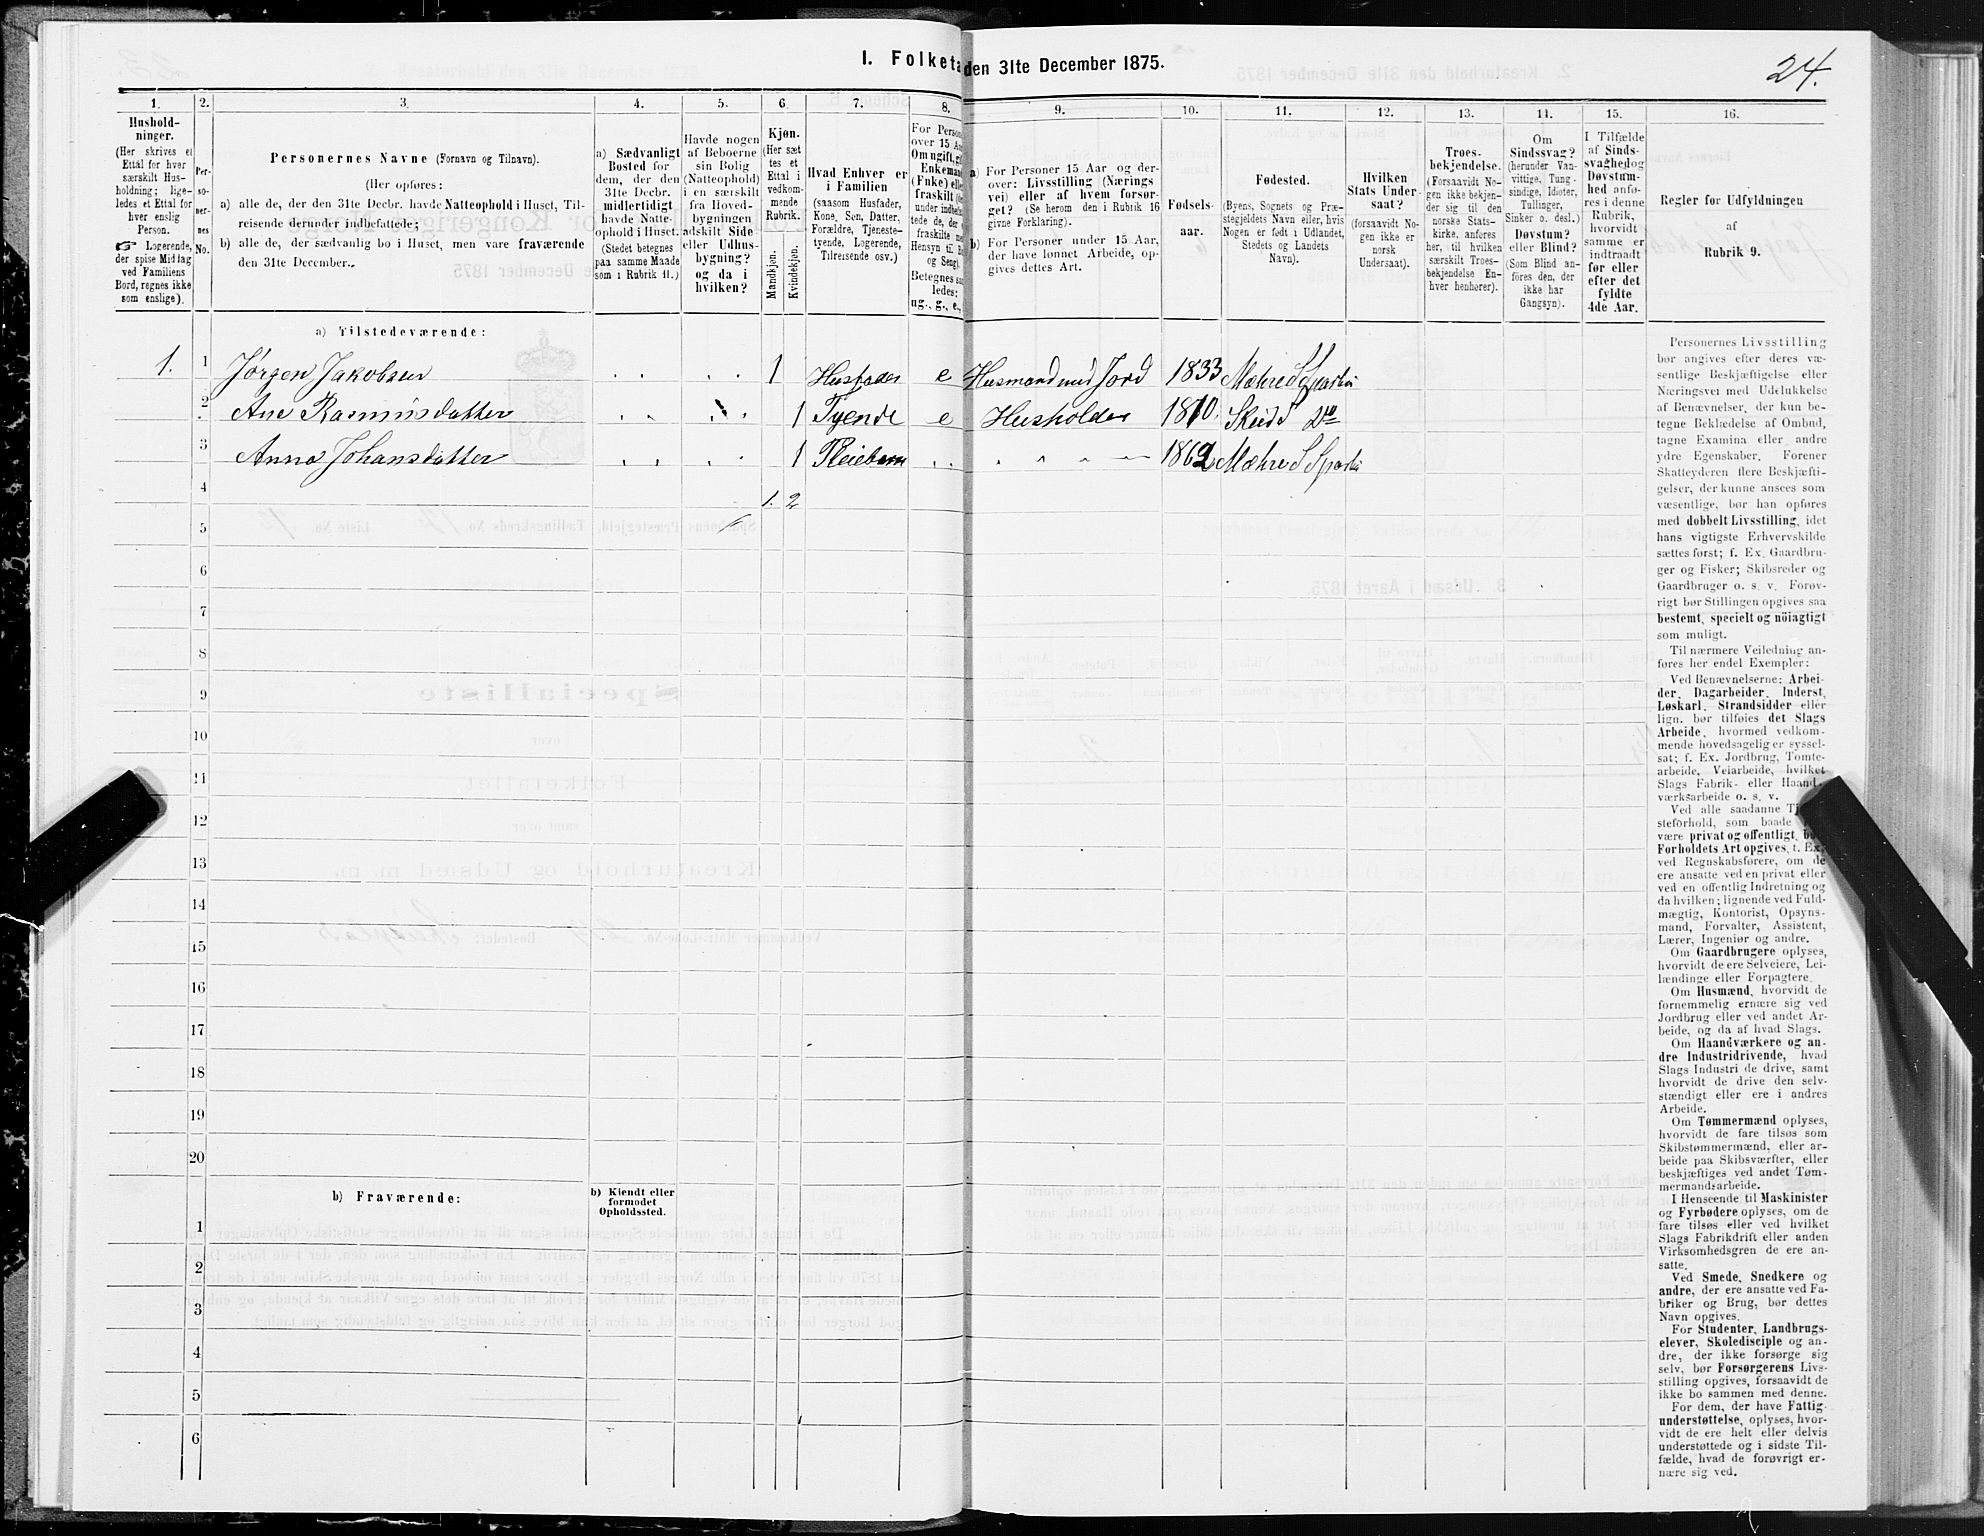 24.
I. Folketa den 31te December 1875.
1. 2. 3. 4. 5. 6. 7. 8. 9. 10. 11. 12. 13. 14. 15. 16.
Hushold-
ninger.
(Her skrives et
Ettal for hver
særskilt Hus-
holdning; lige-
ledes et Ettal for
hver enslig
Person.
☞ Logerende,
der spise Middag
ved Familiens
Bord, regnes ikke
som enslige).
Per-
so-
ner-
nes
No.
Personernes Navne (Fornavn og Tilnavn).
(Her opføres:
a) alle de, der den 31te Decbr. havde Natteophold i Huset, Til-
reisende derunder indbefattede;
b) alle de, der sædvanlig bo i Huset, men vare fraværende
den 31te December.
a) Sædvanligt
Bosted for
dem, der den
31te Decbr.
midlertidigt
havde Natte-
ophold i Huset.
(Stedet betegnes
paa samme Maade
som i Rubrik 11.)
Havde nogen
af Beboerne
sin Bolig
(Natteophold)
i en særskilt
fra Hoved-
bygningen
adskilt Side
eller Udhus-
bygning?
og da i
hvilken?
Kjøn.
(Her sæt
tes et
Ettal i
vedkom-
mende
Rubrik.
Mandkjøn.
Kvindekjøn.
Hvad Enhver er
i Familien
(saasom Husfader,
Kone, Søn, Datter,
Forældre, Tjeneste-
tyende, Logerende,
Tilreisende osv.)
For Person
over 15 Aa
Om ugift, gi
Enkeman
(Fnke) elle
fraskilt (for
under indbefat
tede de, der e
fraskilte me
Hensyn til Bo
og Seng).
Betegnes saa
ledes:
ug., g., e.,
a) For Personer 15 Aar og der-
over: Livsstilling (Nærings
vei) eller af hvem forsør-
get? (Se herom den i Rubrik 16
givne Forklaring).
b) For Personer under 15 Aar,
der have lønnet Arbeide, op-
gives dettes Art.
Fødsels-
aar.
Fødested.
(Byens, Sognets og Præ-
stegjeldets Navn eller, hvis
Nogen er født i Udlandet,
Stedets og Landets
Navn).
Hvilken
Stats Under-
saat?
(forsaavidt No-
gen ikke er
norsk
Undersaat).
Troes-
bekjendelse.
(Forsaavidt No-
gen ikke bekjen-
der sig til den
norske Stats-
kirke, anføres
her, til hvilken
særskilt Troes-
bekjendelse En-
hver henhører).
Om
Sindssvag?
(herunder Van-
vittige, Tung-
sindige, Idioter,
Tullinger,
Sinker o. desl.)
Døvstum?
eller Blind?
(Som Blind an-
føres den, der
ikke har
Gangsyn).
I Tilfælde
af Sinds-
svaghed og
Døvstum-
hed anfø-
res i denne
Rubrik,
hvorvidt
samme er
indtraadt
før eller
efter det
fyldte
4de Aar.
Regler for Udfyldningen
af
Rubrik 9.
a) Tilstedeværende:
1. 1 Jørgen Jakobsen 1 Husfader e Husmand med Jord 1833 Mæhre S Sparbu
2 Ane Rasmusdatter 1 Tyende e Husholder 1810. Skeid S
3 Anna Johansdatter 1 Pleiebarn 1862 Mæhre S Sparbu
4 1. 2
5
6
7
8
9
10
11
12
13
14
15
16
17
18
19
20
b) Fraværende:
b) Kjendt eller
formodet
Opholdssted.
1
2
3
4
5
6
Personernes Livsstilling
bør angives efter deres væ-
sentlige Beskjæftigelse eller
Næringsvei med Udelukkelse
af Benævnelser, der kun be-
tegne Beklædelse af Ombud,
tagne Examina eller andre
ydre Egenskaber. Forener
Skatteyderen flere Beskjæfti-
gelser, der kunne ansees som
væsentlige, bør han opføres
med dobbelt Livsstilling, idet
hans vigtigste Erhvervskilde
sættes først; f. Ex. Gaardbru-
ger og Fisker; Skibsreder og
Gaardbruger o. s. v. Forøv-
rigt bør Stillingen opgives saa
bestemt, specielt og nöiagtigt
som muligt.
Til nærmere Veiledning an-
føres her endel Exempler:
Ved Benævnelserne: Arbei-
der, Dagarbeider, Inderst,
Løskarl, Strandsidder eller
lign. bør tilføies det Slags
Arbeide, hvormed vedkom-
mende hovedsagelig er syssel-
sat; f. Ex. Jordbrug, Tomte-
arbeide, Veiarbeide, hvilket
Slags Fabrik- eller Haand-
værksarbeide o. s. v.
Ved alle saadanne Tj
steforhold, som baade
være privat og offentligt, bø
Forholdets Art opgives, t. Ex.
ved Regnskabsførere, om de
ere ansatte ved en privat eller
ved en offentlig Indretning og
da hvilken; lignende ved Fuld-
mægtig, Kontorist, Opsyns-
mand, Forvalter, Assistent,
Lærer, Ingeniør og andre.
Om Gaardbrugere oplyses,
hvorvidt de ere Selveiere, Lei-
lændinge eller Forpagtere.
Om Husmænd, hvorvidt de
fornemmelig ernære sig ved
Jordbrug eller ved andet Ar-
beide, og da af hvad Slags.
Om Haandværkere og an-
dre Industridrivende, hvad
Slags Industri de drive, samt
hvorvidt de drive den selv-
stændigt eller ere i andres
Arbeide.
Om Tømmermænd oplyses,
hvorvidt de fare tilsøs som
Skibstømmermænd, eller ar-
beide paa Skibsværfter, eller
beskjæftiges ved andet Tøm-
mermandsarbeide.
I Henseende til Maskinister
og Fyrbødere oplyses, om de
fare tilsøs eller ved hvilket
Slags Fabrikdrift eller anden
Virksomhedsgren de ere an-
satte.
Ved Smede, Snedkere og
andre, der ere ansatte ved Fa-
briker og Brug, bør dettes
Navn opgives.
For Studenter, Landbrugs-
elever, Skoledisciple og an-
dre, der ikke forsørge sig
selv, bør Forsørgerens Livs-
stilling opgives, forsaavidt de
ikke bo sammen med denne.
For dem, der have Fattig-
understøttelse, oplyses, hvor-
vidt de ere helt eller delvis
understøttede og i sidste Til-
fælde, hvad de forøvrigt er-
nære sig ved.